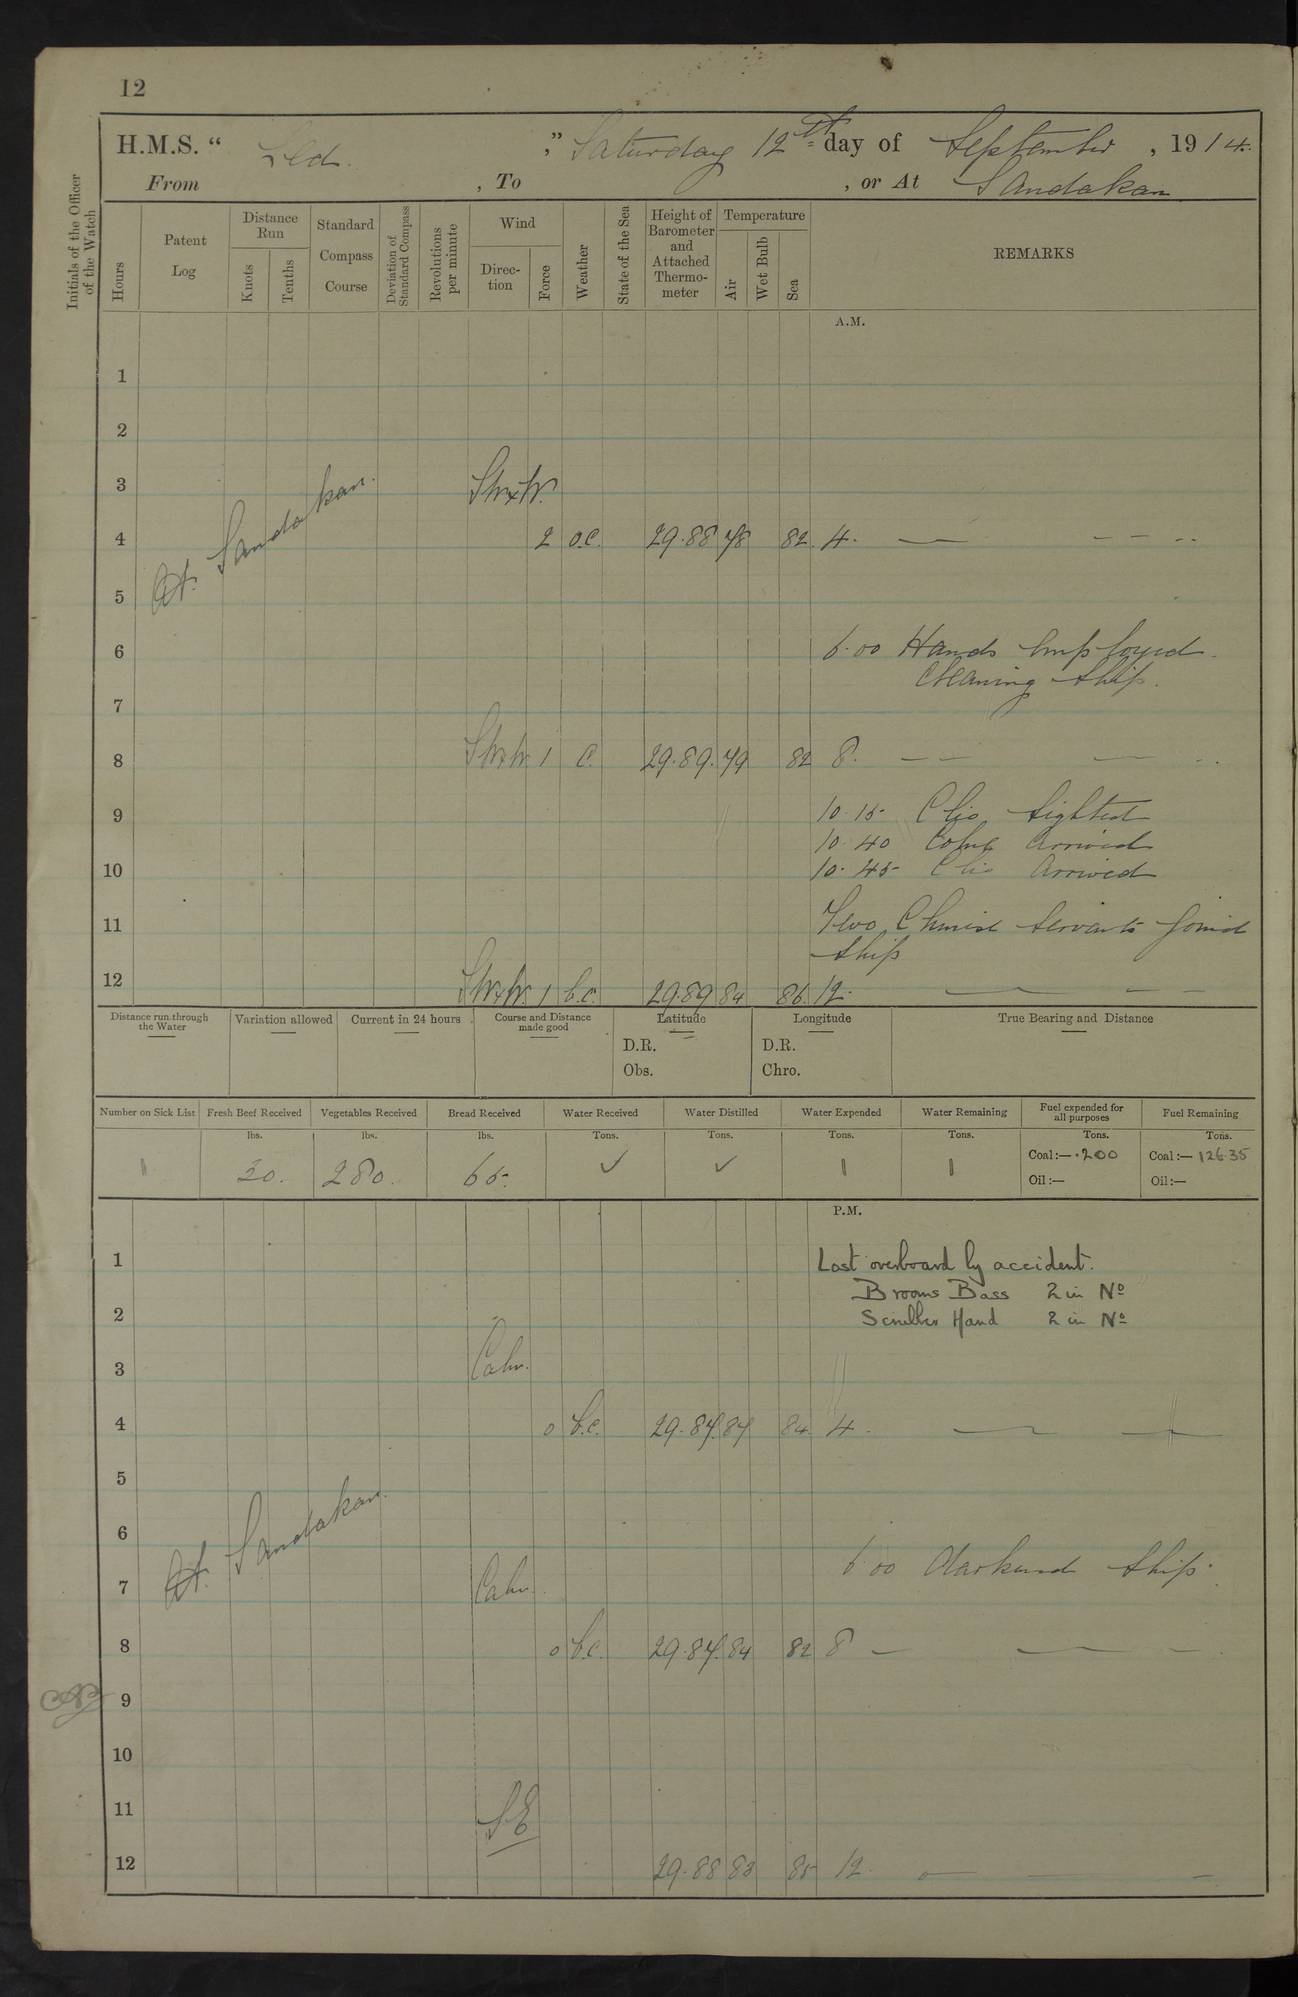 12
H.M.S. “ ” Saturday 12th day of September, 1914.
From , To , or At Sandakan
Initials of the Officer of the Watch
Hours
Patent Log
Distance Run
Knots
Tenths
Standard Compass Course
Deviation of Standard Compass
Revolutions per minute
Wind
Direction
Force
Weather
State of the Sea
Height of Barometer and Attached Thermometer
Temperature
Air
Wet Bulb
Sea
REMARKS
A.M.
1
2
3
4 2 o.c. 29.88 78 82 4.
At Sandakan.
5
6 6.00 Hands employed
cleaning ship.
7
8 1 c. 29.89. 79 82 8.
9 10.15 Clio sighted
10.40 arrived
10 10.45 Clio arrived
11 Two Chinese servants joined
ship
12 1 b.c. 29.89 84 86. 12.
Distance run through the Water
Variation allowed
Current in 24 hours
Course and Distance made good
Latitude
D.R.
Obs.
Longitude
D.R.
Chro.
True Bearing and Distance
Number on Sick List
Fresh Beef Received
Vegetables Received
Bread Received
Water Received
Water Distilled
Water Expended
Water Remaining
Fuel expended for all purposes
Fuel Remaining
lbs. lbs. lbs. Tons. Tons. Tons. Tons. Tons. Tons.
30. 280. 65. ✓ ✓ Coal:— .200 Coal:— 126.35
Oil:— Oil:—
P.M.
1 Lost overboard by accident.
Brooms Bass 2 in No
2 Scrubber Hand 2 in No
3 Calm.
4 0 b.c. 29.84. 84 84 4.
5
At Sandakan.
6 6.00 Darkened ship.
7 Calm.
8 0 b.c. 29.84. 84 82 8
9
10
11 SE
12 29.88 83 85 12.